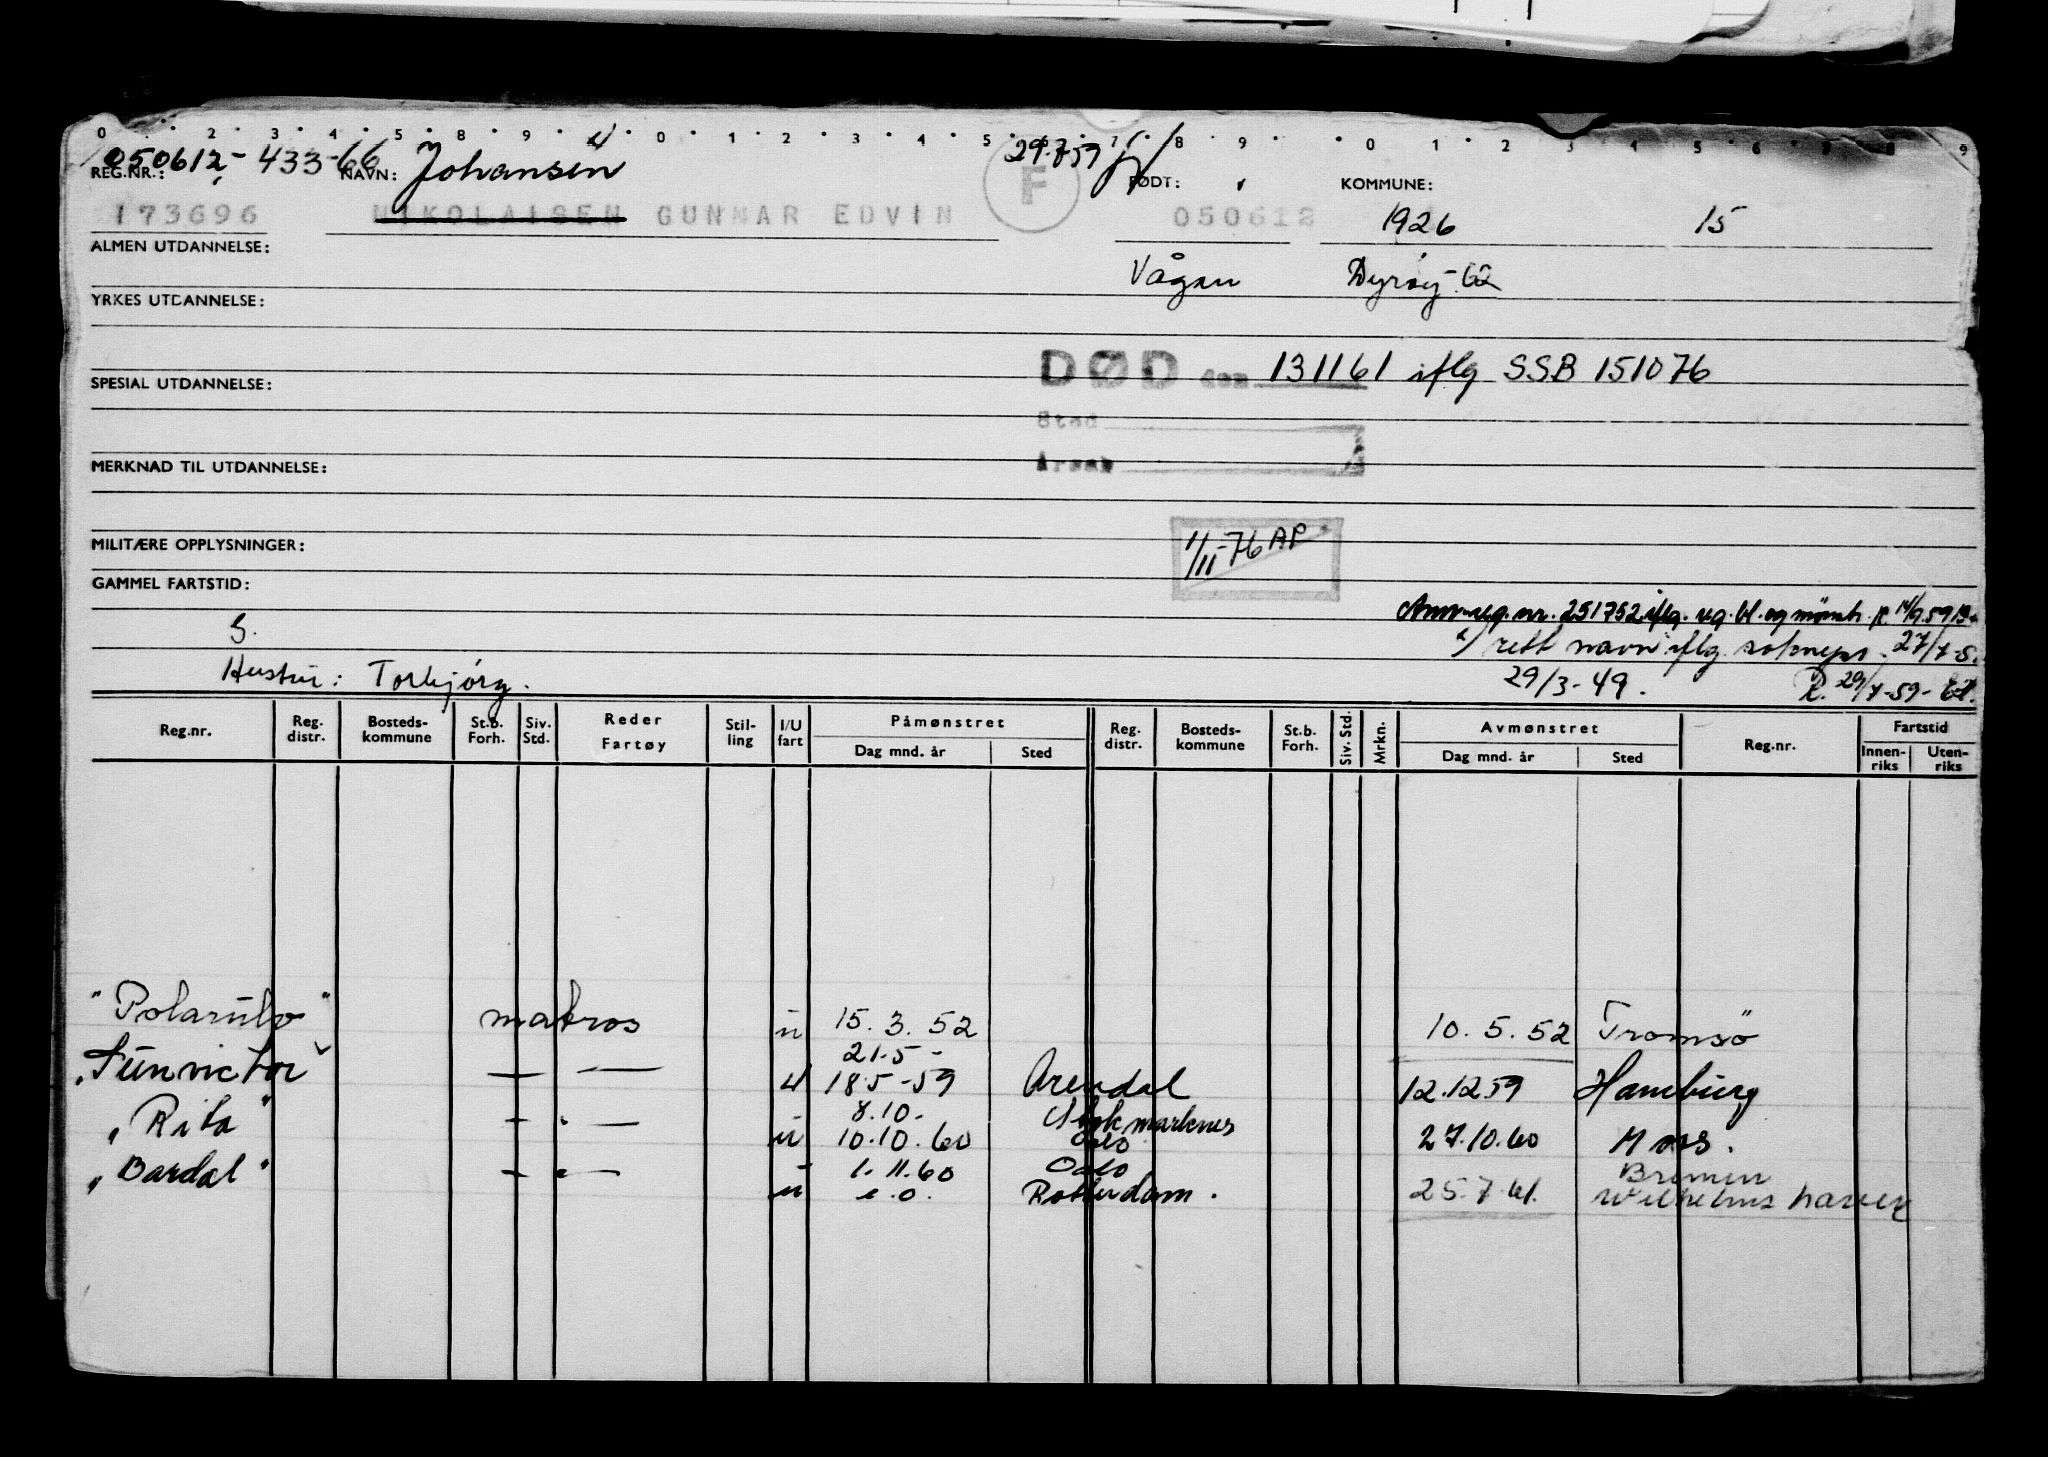 0 . 2 . 3 . 4 . 5 . 8 . 9 . 0 . 1 . 2 . 3 . 4 . 5 . 7 . 8 . 9 . 0 1 . 2 3 4 5 . 6 . 9
050612-433-66 Johansen 29.7.59
REG.NR.: NAVN: F FØDT: KOMMUNE:
173696 NIKOLAISEN GUNNAR EDVIN 050612 1926 15
ALMEN UTDANNELSE:
Vågan Dyrøy-62
YRKES UTDANNELSE:
DØD den 131161 iflg SSB 151076
SPESIAL UTDANNELSE:
Sted
MERKNAD TIL UTDANNELSE: Årsak
1/11-76 AP
MILITÆRE OPPLYSNINGER:
GAMMEL FARTSTID:
Ann.reg.nr. 251752 iflg. reg. bl. og mønstr.
G. x) rett navn iflg. sokneps. 27/7-5.
29/3-49. R. 29/7-59-
Hustru: Torbjørg.
Reg.nr. Reg. distr. Bosteds- kommune St.b. Forh. Siv. Std. Reder Fartøy Stil- ling I/U fart Påmønstret Reg. distr. Bosteds- kommune St.b. Forh. Siv. Std. Mrkn. Avmønstret Reg.nr. Fartstid
Dag mnd. år Sted Dag mnd. år Sted Innen- riks Uten- riks
"Polarulv" matros u 15.3.52 10.5.52 Tromsø
21.5-
"Sunvictor" — — u 18.5-59 Arendal 12.12.59 Hamburg
8.10. Stokmarknes
"Rita" — " — u 10.10.60 Oslo 27.10.60 Moss.
1.11.60 Oslo Bremen
"Bardal" — " — u s.o. Rotterdam. 25.7.61. Wilhelmshaven